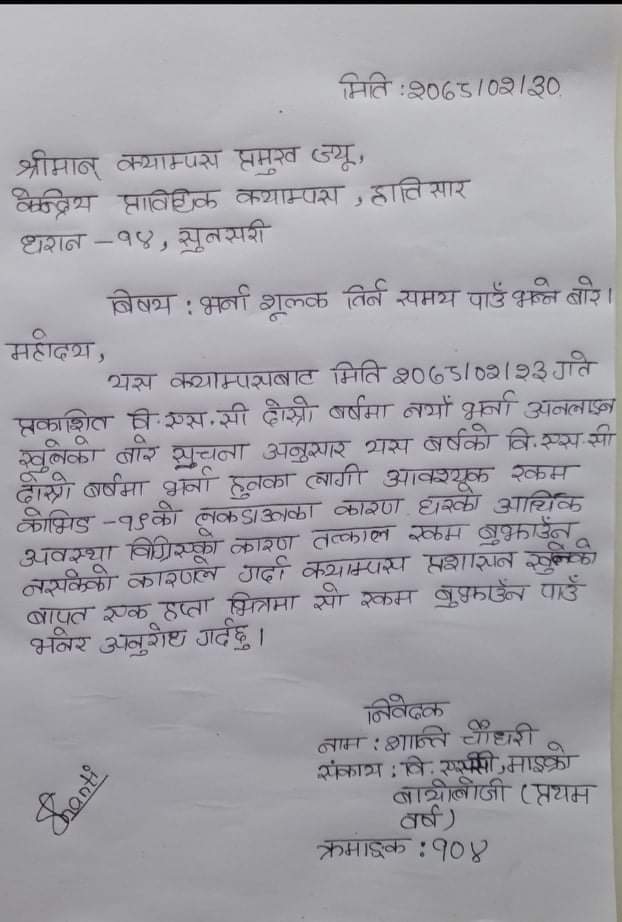 मिति : २०७८।०२।३०
श्रीमान् क्याम्पस प्रमुख ज्यू,
केन्द्रिय प्राविधिक क्याम्पस , हात्तिसार
धरान - १४ , सुनसरी
बिषय : भर्ना शूलक तिर्न समय पाउँ भन्ने बारे।
महोदय,
यस क्याम्पसबाट मिति २०७८।०२।२३ गते
प्रकाशित वि. एस. सी दोस्रो बर्षमा नयाँ भर्ना अनलाइन
खुलेको बारे सुचना अनुसार यस बर्षको वि. एस. सी
दोस्रो बर्षमा भर्ना हुनका लागी आवश्यक रकम
कोभिड -१९को लकडाउनका कारण घरको आर्थिक
अवस्था बिग्रिएको कारण तत्काल रकम बुझाउँन
नसकेको कारणले गर्दा क्याम्पस प्रशासन खुलेको
बापत एक हप्ता भित्रमा सो रकम बुझाउँन पाउँ
भनेर अनुरोध गर्दछु।
निवेदक
नाम : शान्ति चौधरी
संकाय : वि. एससी, माइक्रो
बायोलोजी (प्रथम
वर्ष)
क्रमाङ्क : १०४
Shanti